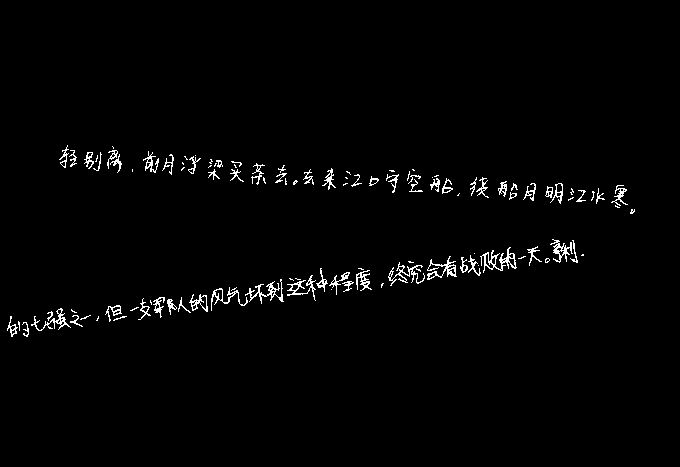 轻别离，前月浮梁买茶去。去来江口守空船，绕船月明江水寒。
的七强之一，但一支军队的风气坏到这种程度，终究会有战败的一天。亨利.